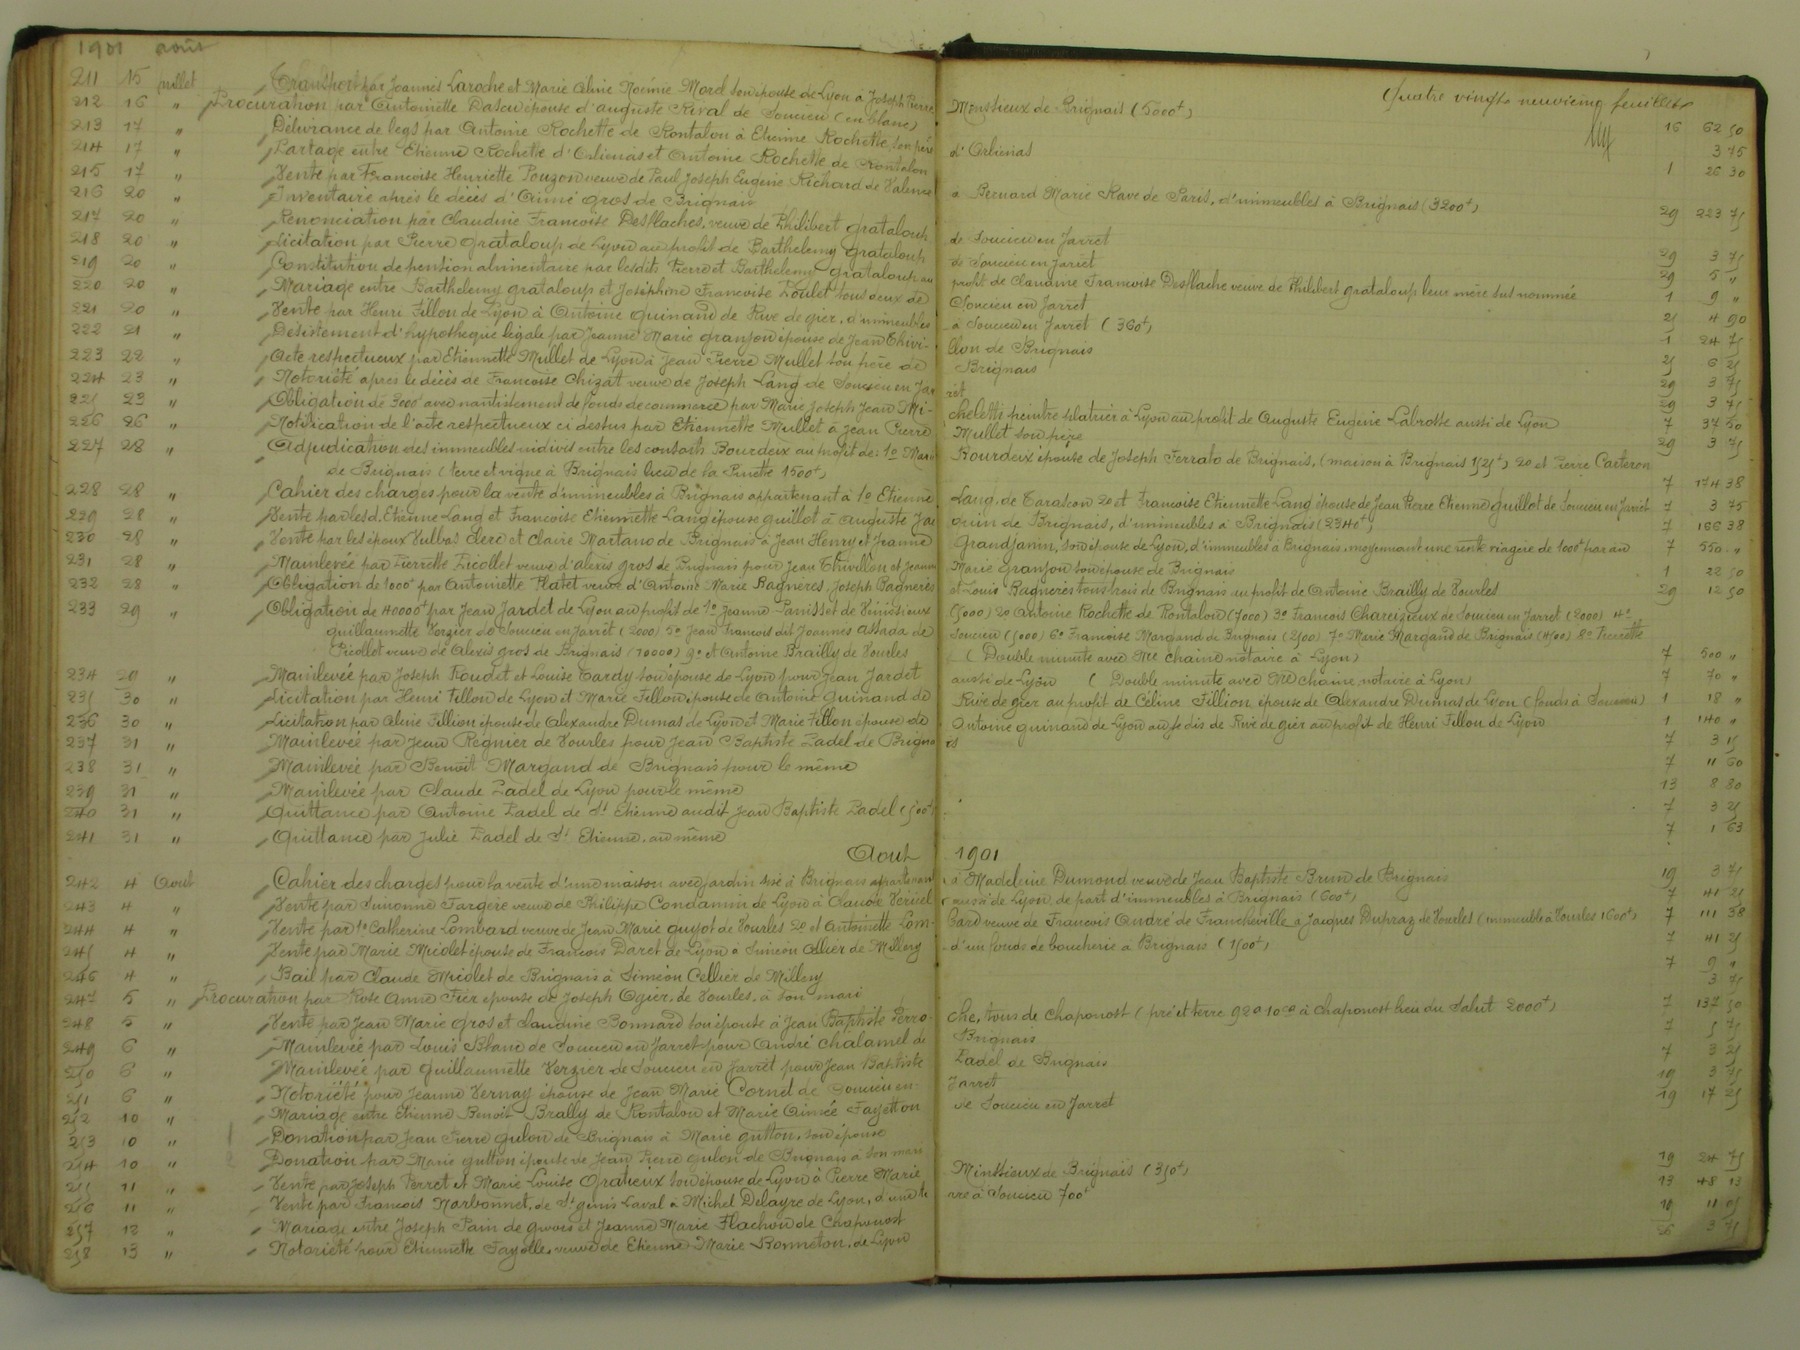 1901 août
Quatre vingt neuvième feuillet
211 15 juillet Transport par Joannès Laroche et Marie Aline Noémie Morel son épouse de Lyon à Joseph Pierre Minssieux de Brignais (5000f) 16 62 50
212 16 " Procuration par Antoinette épouse d'Auguste Rival de Soucieu (en blanc) 3 75
213 17 " Délivrance de legs par Antoine Rochette de Rontalon à Etienne Rochette, son père d'Orliénas 1 26 30
214 17 " Partage entre Etienne Rochette d'Orliénas et Antoine Rochette de Rontalon
215 17 " Vente par Francoise Henriette Pouzon veuve de Paul Joseph Eugène Richard de Valence à Bernard Marie Rave de Paris, d'immeubles à Brignais (3200f) 29 223 75
216 20 " Inventaire après le décès d'Aimé Gros de Brignais
217 20 " Renonciation par Claudine Francoise Desflaches, veuve de Philibert Grataloup de Soucieu en Jarret 29 3 75
218 20 " Licitation par Pierre Grataloup de Lyon au profit de Barthelemy Grataloup de Soucieu en Jarret 29 5 "
219 20 " Constitution de pension alimentaire par lesdits Pierre et Barthelemy Grataloup au profit de Claudine Francoise Desflache veuve de Philibert Grataloup leur mère sus nommée 1 9 "
220 20 " Mariage entre Barthelemy Grataloup et Joséphine Francoise Poulet tous deux de Soucieu en Jarret 25 4 90
221 20 " Vente par Henri Fillon de Lyon à Antoine Guinand de Rive de gier, d'immeubles à Soucieu en Jarret (360f) 1 24 75
222 21 " Désistement d'hypothèque légale par Jeanne Marie Granjon épouse de Jean Thivillon de Brignais 25 6 25
223 22 " Acte respectueux par Etiennette Mullet de Lyon à Jean Pierre Mullet son père de Brignais 29 3 75
224 23 " Notoriété après le décès de Francoise Chizat veuve de Joseph Lang de Soucieu en Jarret 29 3 75
225 23 " Obligation de 3000f avec nantissement de fonds de commerce par Marie Joseph Jean Micheletti peintre plâtrier à Lyon au profit de Auguste Eugène Labrosse aussi de Lyon 7 37 50
226 26 " Notification de l'acte respectueux ci dessus par Etiennette Mullet à Jean Pierre Mullet son père 29 3 75
227 28 " Adjudication des immeubles indivis entre les consorts Bourdeix au profit de: 1o Marie Bourdeix épouse de Joseph Ferrato de Brignais, (maison à Brignais 1525f) 2o et Pierre Carteron
de Brignais (terre et vigne à Brignais lieu de la Pinette 1500f) 7 174 38
228 28 " Cahier des charges pour la vente d'immeubles à Brignais appartenant à 1o Etienne Lang, de Tarascon 2o et Francoise Etiennette Lang épouse de Jean Pierre Etienne Guillot de Soucieu en Jarret 7 3 75
229 28 " Vente par les d. Etienne Lang et Francoise Etiennette Lang épouse Guillot à Auguste Jacquin de Brignais, d'immeubles à Brignais (2340f) 7 166 38
230 28 " Vente par les époux Vulbas Clerc et Claire Martano de Brignais à Jean Henry et Jeanne Grandjanin, son épouse de Lyon, d'immeubles à Brignais, moyennant une rente viagère de 1000f par an 7 550 "
231 28 " Mainlevée par Pierrette Picollet veuve d'Alexis Gros de Brignais pour Jean Thivillon et Jeanne Marie Granjon son épouse de Brignais 1 22 50
232 28 " Obligation de 1000f par Antoinette Platet veuve d'Antoine Marie Bagnères, Joseph Bagnères et Louis Bagnères tous trois de Brignais au profit de Antoine Brailly de Vourles 29 12 50
233 29 " Obligation de 40000f par Jean Jardet de Lyon au profit de 1o Jeanne Panisset de Vénissieux (5000) 2o Antoine Rochette de Rontalon (7000) 3o Francois Chareisieux de Soucieu en Jarret (2000) 4o
Guillaumette Verzier de Soucieu en Jarret (2000) 5o Jean Francois dit Joannès Assada de Soucieu (5000) 6o Francoise Margand de Brignais (2500) 7o Marie Margand de Brignais (4500) 8o Pierrette
Picollet veuve de Alexis Gros de Brignais (10000) 9o et Antoine Brailly de Vourles (Double minute avec Me Chaine notaire à Lyon) 7 500 "
234 29 " Mainlevée par Joseph Roudet et Louise Tardy son épouse de Lyon pour Jean Jardet aussi de Lyon (Double minute avec Me Chaine notaire à Lyon) 7 70 "
235 30 " Licitation par Henri Fillon de Lyon et Marie Fillon épouse de Antoine Guinand de Rive de gier au profit de Céline Fillion épouse de Alexandre Dumas de Lyon (fonds à Soucieu) 1 18 "
236 30 " Licitation par Aline Fillion épouse de Alexandre Dumas de Lyon et Marie Fillon épouse de Antoine Guinand de Lyon de Rive de gier au profit de Henri Fillon de Lyon 1 140 "
237 31 " Mainlevée par Jean Régnier de Vourles pour Jean Baptiste Zadel de Brignais 7 3 15
238 31 " Mainlevée par Benoît Margand de Brignais pour le même 7 11 60
239 31 " Mainlevée par Claude Zadel de Lyon pour le même 13 8 80
240 31 " Quittance par Antoine Zadel de St Etienne audit Jean Baptiste Zadel (500f) 7 3 25
241 31 " Quittance par Julie Zadel de St Etienne, au même 7 1 63
Aout 1901
242 4 Aout Cahier des charges pour la vente d'une maison avec jardin sise à Brignais appartenant à Madeleine Dumond veuve de Jean Baptiste Brun de Brignais 19 3 75
243 4 " Vente par Simonne Fargère veuve de Philippe Condamin de Lyon à Claude Vérivel aussi de Lyon, de part d'immeubles à Brignais (600f) 7 41 25
244 4 " Vente par 1o Catherine Lombard veuve de Jean Marie Guyot de Vourles 2o et Antoinette Lombard veuve de Francois André de Francheville à Jacques Dupraz de Vourles (immeuble à Vourles 1600f) 7 111 38
245 4 " Vente par Marie Miolet épouse de Francois Daret de Lyon à Siméon Cellier de Millery d'un fonds de boucherie à Brignais (1500f) 7 41 25
246 4 " Bail par Claude Miolet de Brignais à Siméon Cellier de Millery 7 9 "
247 5 " Procuration par Rose Anne Fier épouse de Joseph Ogier, de Vourles, à son mari 3 75
248 5 " Vente par Jean Marie Gros et Claudine Bonnard son épouse à Jean Baptiste Perroche, tous de Chaponost (pré et terre 92a 10ca à Chaponost lieu du Salut 2000f) 7 137 50
249 6 " Mainlevée par Louis Blanc de Soucieu en Jarret pour André Chalamel de Brignais 7 5 75
250 6 " Mainlevée par Guillaumette Verzier de Soucieu en Jarret pour Jean Baptiste Zadel de Brignais 7 3 25
251 6 " Notoriété pour Jeanne Vernay épouse de Jean Marie Cornet de Soucieu en Jarret 19 3 75
252 10 " Mariage entre Etienne Benoît Brally de Rontalon et Marie Aimée Fayetton de Soucieu en Jarret 19 17 25
253 10 " Donation par Jean Pierre Gulon de Brignais à Marie Gutton, son épouse
254 10 " Donation par Marie Gutton épouse de Jean Pierre Gulon de Brignais à son mari
255 11 " Vente par Joseph Ferret et Marie Louise Opatieux son épouse de Lyon à Pierre Marie Minssieux de Brignais (350f) 19 24 75
256 11 " Vente par Francois Narbonnet, de St genis Laval à Michel Delayre de Lyon, d'une terre à Soucieu 700f 13 48 13
257 12 " Mariage entre Joseph Pain de et Jeanne Marie Flachon de Chaponost 19 11 05
258 13 " Notoriété pour Etiennette Fayolle, veuve de Etienne Marie Bonneton, de Lyon 26 3 75